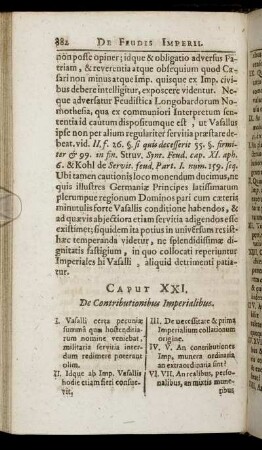 382 DE FEUDIS IMPERII.
non posse opiner; idque & obligatio adversus Pa-
triam, & reverentia atque obsequium quod Cæ-
sari non minus atque Imp. quisque ex Imp. civi-
bus debere intelligitur, exposcere videntur. Ne-
que adversatur Feudistica Longobardorum No-
mothesia, qua ex communiori Interpretum sen-
tentia id cautum dispositumque est, ut Vasallus
ipse non per alium regulariter servitia præstare de-
beat. vid. II. f. 26. §. si quis decesserit 55. §. firmi-
ter & 99. in fin. Struv. Synt. Feud. cap. XI. aph.
6. & Kohl de Servit. feud. Part. I. num. 159. seq.
Ubi tamen cautionis loco monendum ducimus, ne
quis illustres Germaniæ Principes latissimarum
plerumque regionum Dominos pari cum cæteris
minutulis forte Vasallis conditione habendos, &
ad quævis abjectiora etiam servitia adigendos esse
existimet; siquidem ita potius in universum res ista
hæc temperanda videtur, ne splendidissimæ di-
gnitatis fastigium, in quo collocati reperiuntur
Imperiales hi Vasalli, aliquid detrimenti patia-
tur.
CAPUT XXI.
De Contributionibus Imperialibus.
I. Vasalli certa pecuniæ
summâ quæ hostenditia-
rum nomine veniebat,
militaria servitia inter-
dum redimere poterant
olim.
II. Idque ab Imp. Vasallis
hodie etiam fieri consue-
vit,
III. De necessitate & prima
Imperialium collationum
origine.
IV. V. An contributiones
Imp. munera ordinaria
an extraordinaria sint?
VI. VII. An realibus, perso-
nalibus, an mixtis mune-
ribus